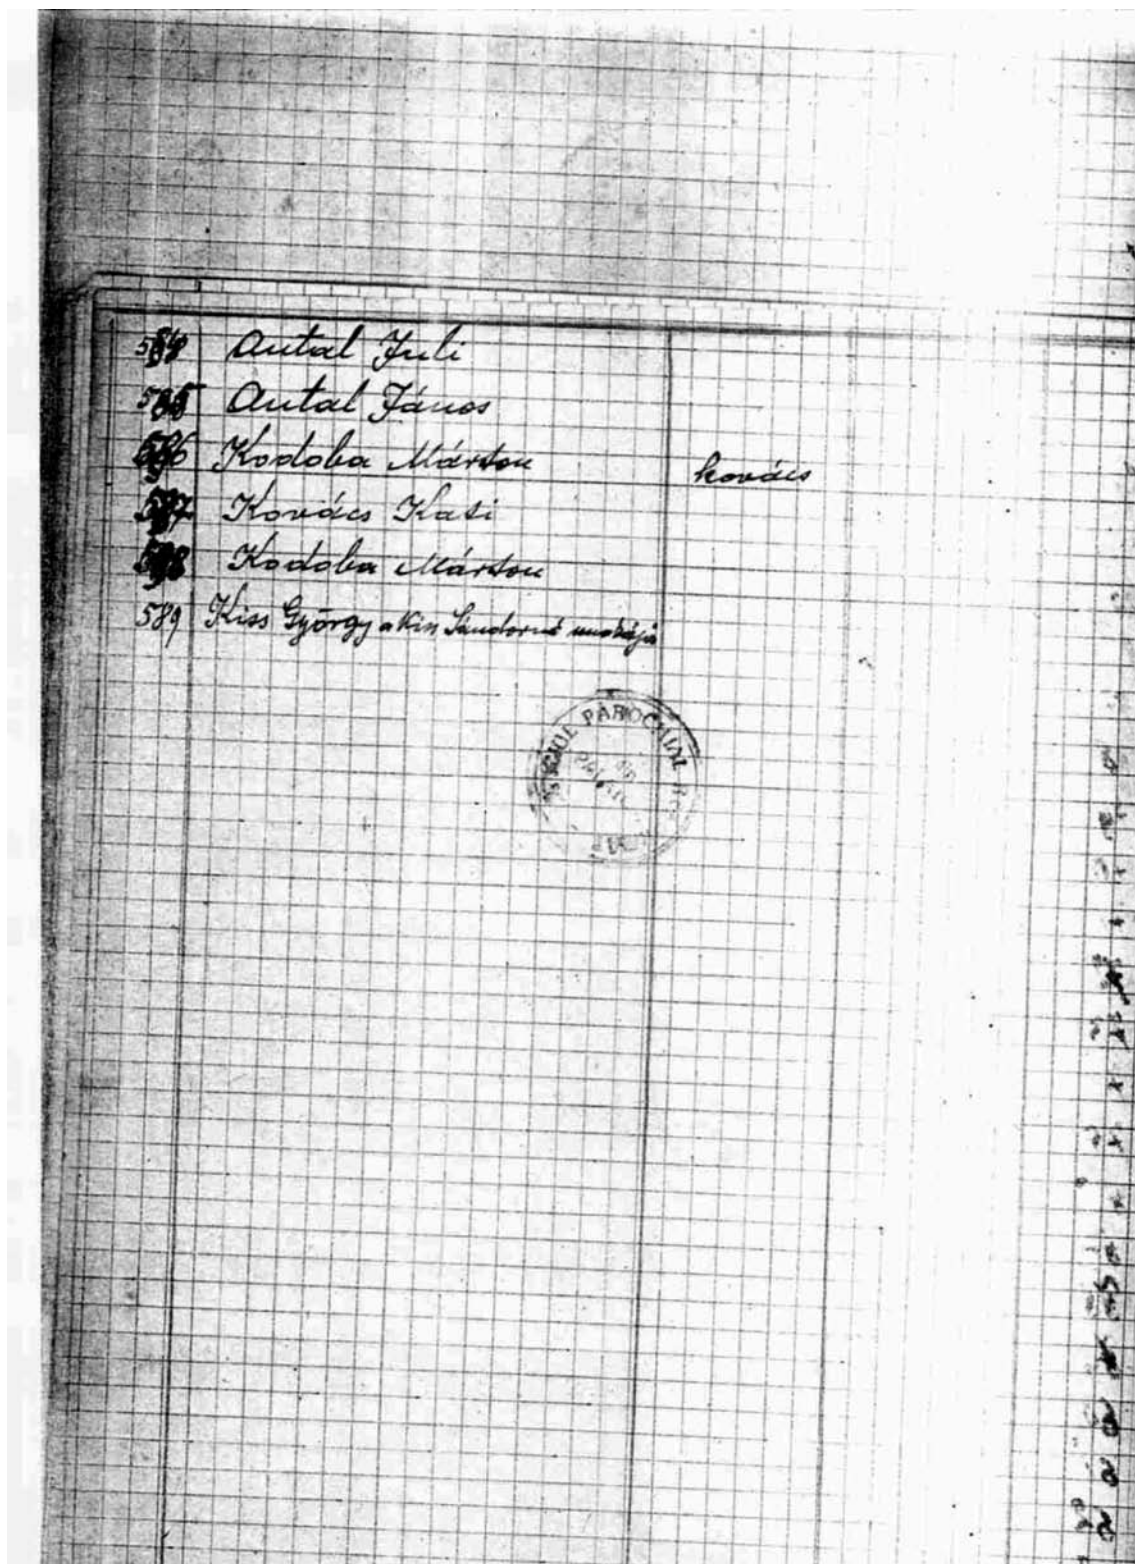 584 Antal Juli
585 Antal János
586 Kodoba Márton kovács
587 Kovács Kati
588 Kodoba Márton
589 Kiss György a Kiss Sándorné unokája
PAROCHIAL